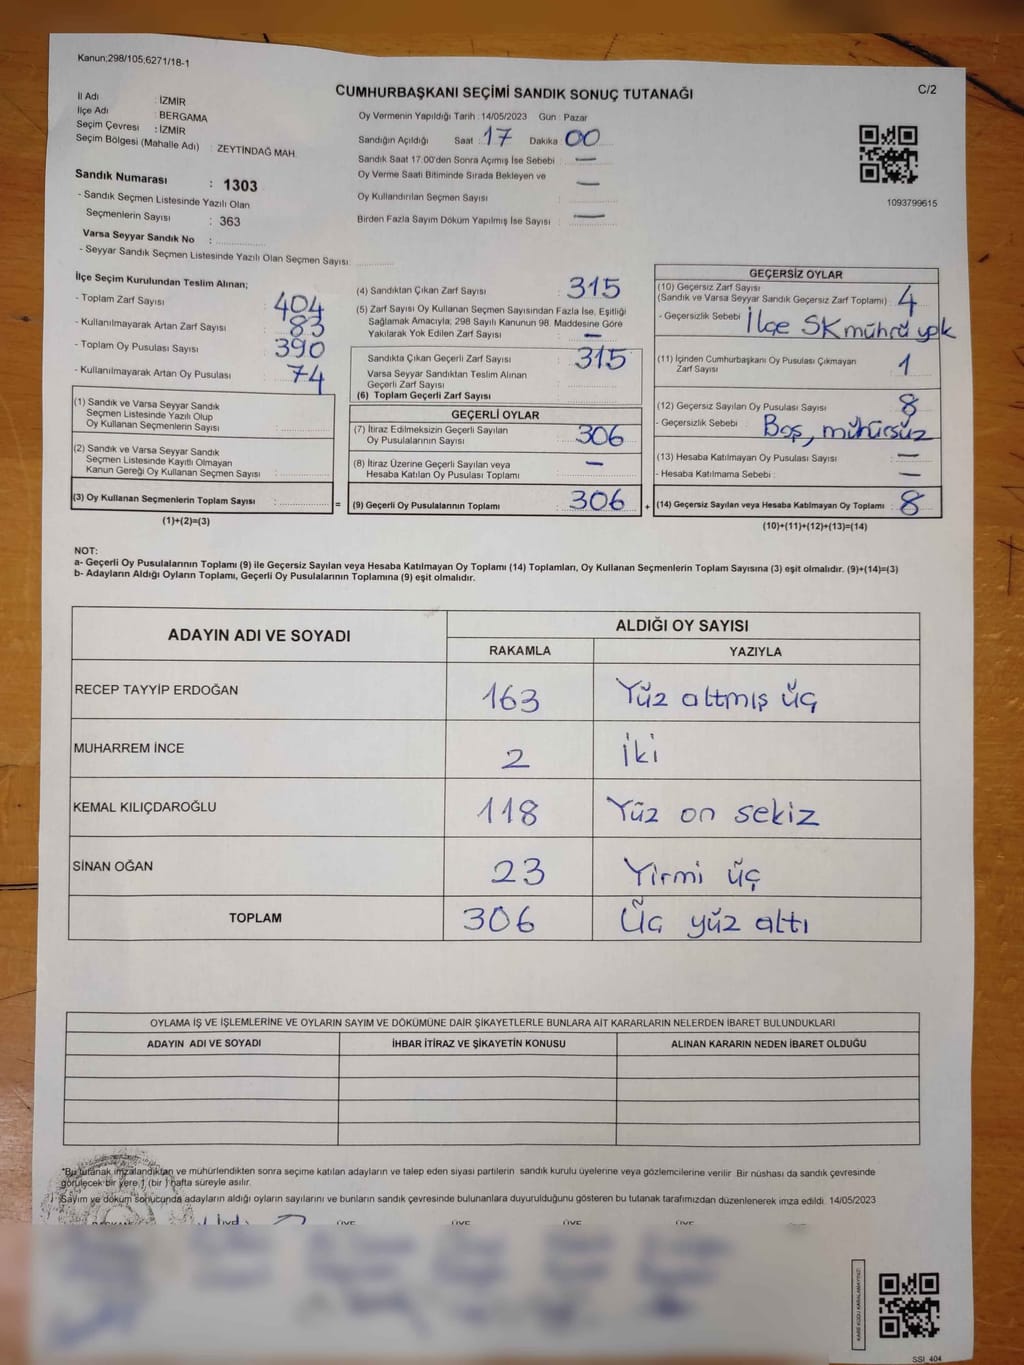 Kanun;298/105;6271/18-1
CUMHURBAŞKANI SEÇİMİ SANDIK SONUÇ TUTANAĞI
C/2
İl Adı : İZMİR
İlçe Adı : BERGAMA
Seçim Çevresi : İZMİR
Seçim Bölgesi (Mahalle Adı) : ZEYTİNDAĞ MAH.
Sandık Numarası : 1303
- Sandık Seçmen Listesinde Yazılı Olan
Seçmenlerin Sayısı : 363
Varsa Seyyar Sandık No :
- Seyyar Sandık Seçmen Listesinde Yazılı Olan Seçmen Sayısı:
Oy Vermenin Yapıldığı Tarih : 14/05/2023 Gün : Pazar
Sandığın Açıldığı Saat : 17 Dakika 00
Sandık Saat 17.00'den Sonra Açımış İse Sebebi : —
Oy Verme Saati Bitiminde Sırada Bekleyen ve
Oy Kullandırılan Seçmen Sayısı : —
Birden Fazla Sayım Döküm Yapılmış İse Sayısı : —
1093799615
İlçe Seçim Kurulundan Teslim Alınan;
- Toplam Zarf Sayısı : 404
- Kullanılmayarak Artan Zarf Sayısı : 83
- Toplam Oy Pusulası Sayısı : 390
- Kullanılmayarak Artan Oy Pusulası : 74
(1) Sandık ve Varsa Seyyar Sandık
Seçmen Listesinde Yazılı Olup
Oy Kullanan Seçmenlerin Sayısı :
(2) Sandık ve Varsa Seyyar Sandık
Seçmen Listesinde Kayıtlı Olmayan
Kanun Gereği Oy Kullanan Seçmen Sayısı :
(3) Oy Kullanan Seçmenlerin Toplam Sayısı : =
(1)+(2)=(3)
(4) Sandıktan Çıkan Zarf Sayısı : 315
(5) Zarf Sayısı Oy Kullanan Seçmen Sayısından Fazla İse, Eşitliği
Sağlamak Amacıyla; 298 Sayılı Kanunun 98. Maddesine Göre
Yakılarak Yok Edilen Zarf Sayısı : —
Sandıkta Çıkan Geçerli Zarf Sayısı : 315
Varsa Seyyar Sandıktan Teslim Alınan
Geçerli Zarf Sayısı :
(6) Toplam Geçerli Zarf Sayısı :
GEÇERLİ OYLAR
(7) İtiraz Edilmeksizin Geçerli Sayılan
Oy Pusulalarının Sayısı : 306
(8) İtiraz Üzerine Geçerli Sayılan veya
Hesaba Katılan Oy Pusulası Toplamı : —
(9) Geçerli Oy Pusulalarının Toplamı : 306 +
GEÇERSİZ OYLAR
(10) Geçersiz Zarf Sayısı
(Sandık ve Varsa Seyyar Sandık Geçersiz Zarf Toplamı) : 4
- Geçersizlik Sebebi : İlçe SK mührü yok
(11) İçinden Cumhurbaşkanı Oy Pusulası Çıkmayan
Zarf Sayısı : 1
(12) Geçersiz Sayılan Oy Pusulası Sayısı : 8
- Geçersizlik Sebebi : Boş, mühürsüz
(13) Hesaba Katılmayan Oy Pusulası Sayısı : —
- Hesaba Katılmama Sebebi : —
(14) Geçersiz Sayılan veya Hesaba Katılmayan Oy Toplamı : 8
(10)+(11)+(12)+(13)=(14)
NOT:
a- Geçerli Oy Pusulalarının Toplamı (9) ile Geçersiz Sayılan veya Hesaba Katılmayan Oy Toplamı (14) Toplamları, Oy Kullanan Seçmenlerin Toplam Sayısına (3) eşit olmalıdır. (9)+(14)=(3)
b- Adayların Aldığı Oyların Toplamı, Geçerli Oy Pusulalarının Toplamına (9) eşit olmalıdır.
ADAYIN ADI VE SOYADI ALDIĞI OY SAYISI
RAKAMLA YAZIYLA
RECEP TAYYİP ERDOĞAN 163 Yüz altmış üç
MUHARREM İNCE 2 İki
KEMAL KILIÇDAROĞLU 118 Yüz on sekiz
SİNAN OĞAN 23 Yirmi üç
TOPLAM 306 Üç yüz altı
OYLAMA İŞ VE İŞLEMLERİNE VE OYLARIN SAYIM VE DÖKÜMÜNE DAİR ŞİKAYETLERLE BUNLARA AİT KARARLARIN NELERDEN İBARET BULUNDUKLARI
ADAYIN ADI VE SOYADI İHBAR İTİRAZ VE ŞİKAYETİN KONUSU ALINAN KARARIN NEDEN İBARET OLDUĞU
*Bu tutanak imzalandıktan ve mühürlendikten sonra seçime katılan adayların ve talep eden siyasi partilerin sandık kurulu üyelerine veya gözlemcilerine verilir. Bir nüshası da sandık çevresinde
görülecek bir yere 1 (bir) hafta süreyle asılır.
Sayım ve döküm sonucunda adayların aldığı oyların sayılarını ve bunların sandık çevresinde bulunanlara duyurulduğunu gösteren bu tutanak tarafımızdan düzenlenerek imza edildi. 14/05/2023
ÜYE ÜYE ÜYE ÜYE
KARE KODU KARALAMAYINIZ!
SSI_404